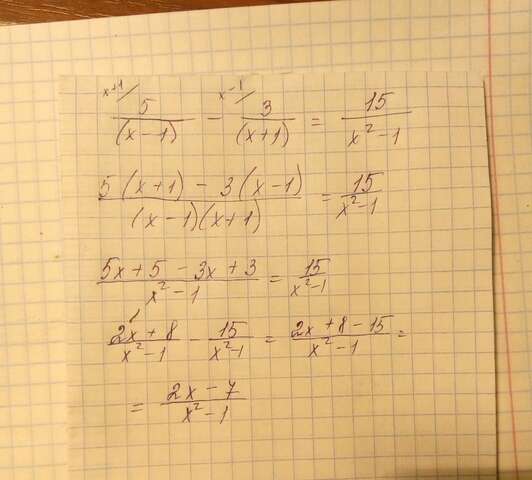 x+1/ 5/(x-1) - x-1/ 3/(x+1) = 15/(x²-1)
(5(x+1) - 3(x-1))/((x-1)(x+1)) = 15/(x²-1)
(5x+5-3x+3)/(x²-1) = 15/(x²-1)
(2x+8)/(x²-1) - 15/(x²-1) = (2x+8-15)/(x²-1) =
= (2x-7)/(x²-1)